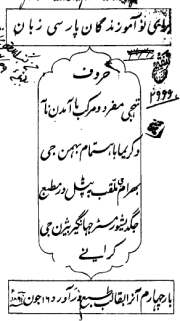 برای نو آموزندگان پارسی زبان
۲۹۶۶
حروف
تهجی مفرد و مرکب تا آمدن نا
و کریما باهتمام بهمن جی
بهرام جی ملقب پٹیل در مطبع
جگدیشور مستر جهانگیر بیژن جی
کرانی
بار چهارم آنرا بقالب طبع در آورد ۱۶ جون